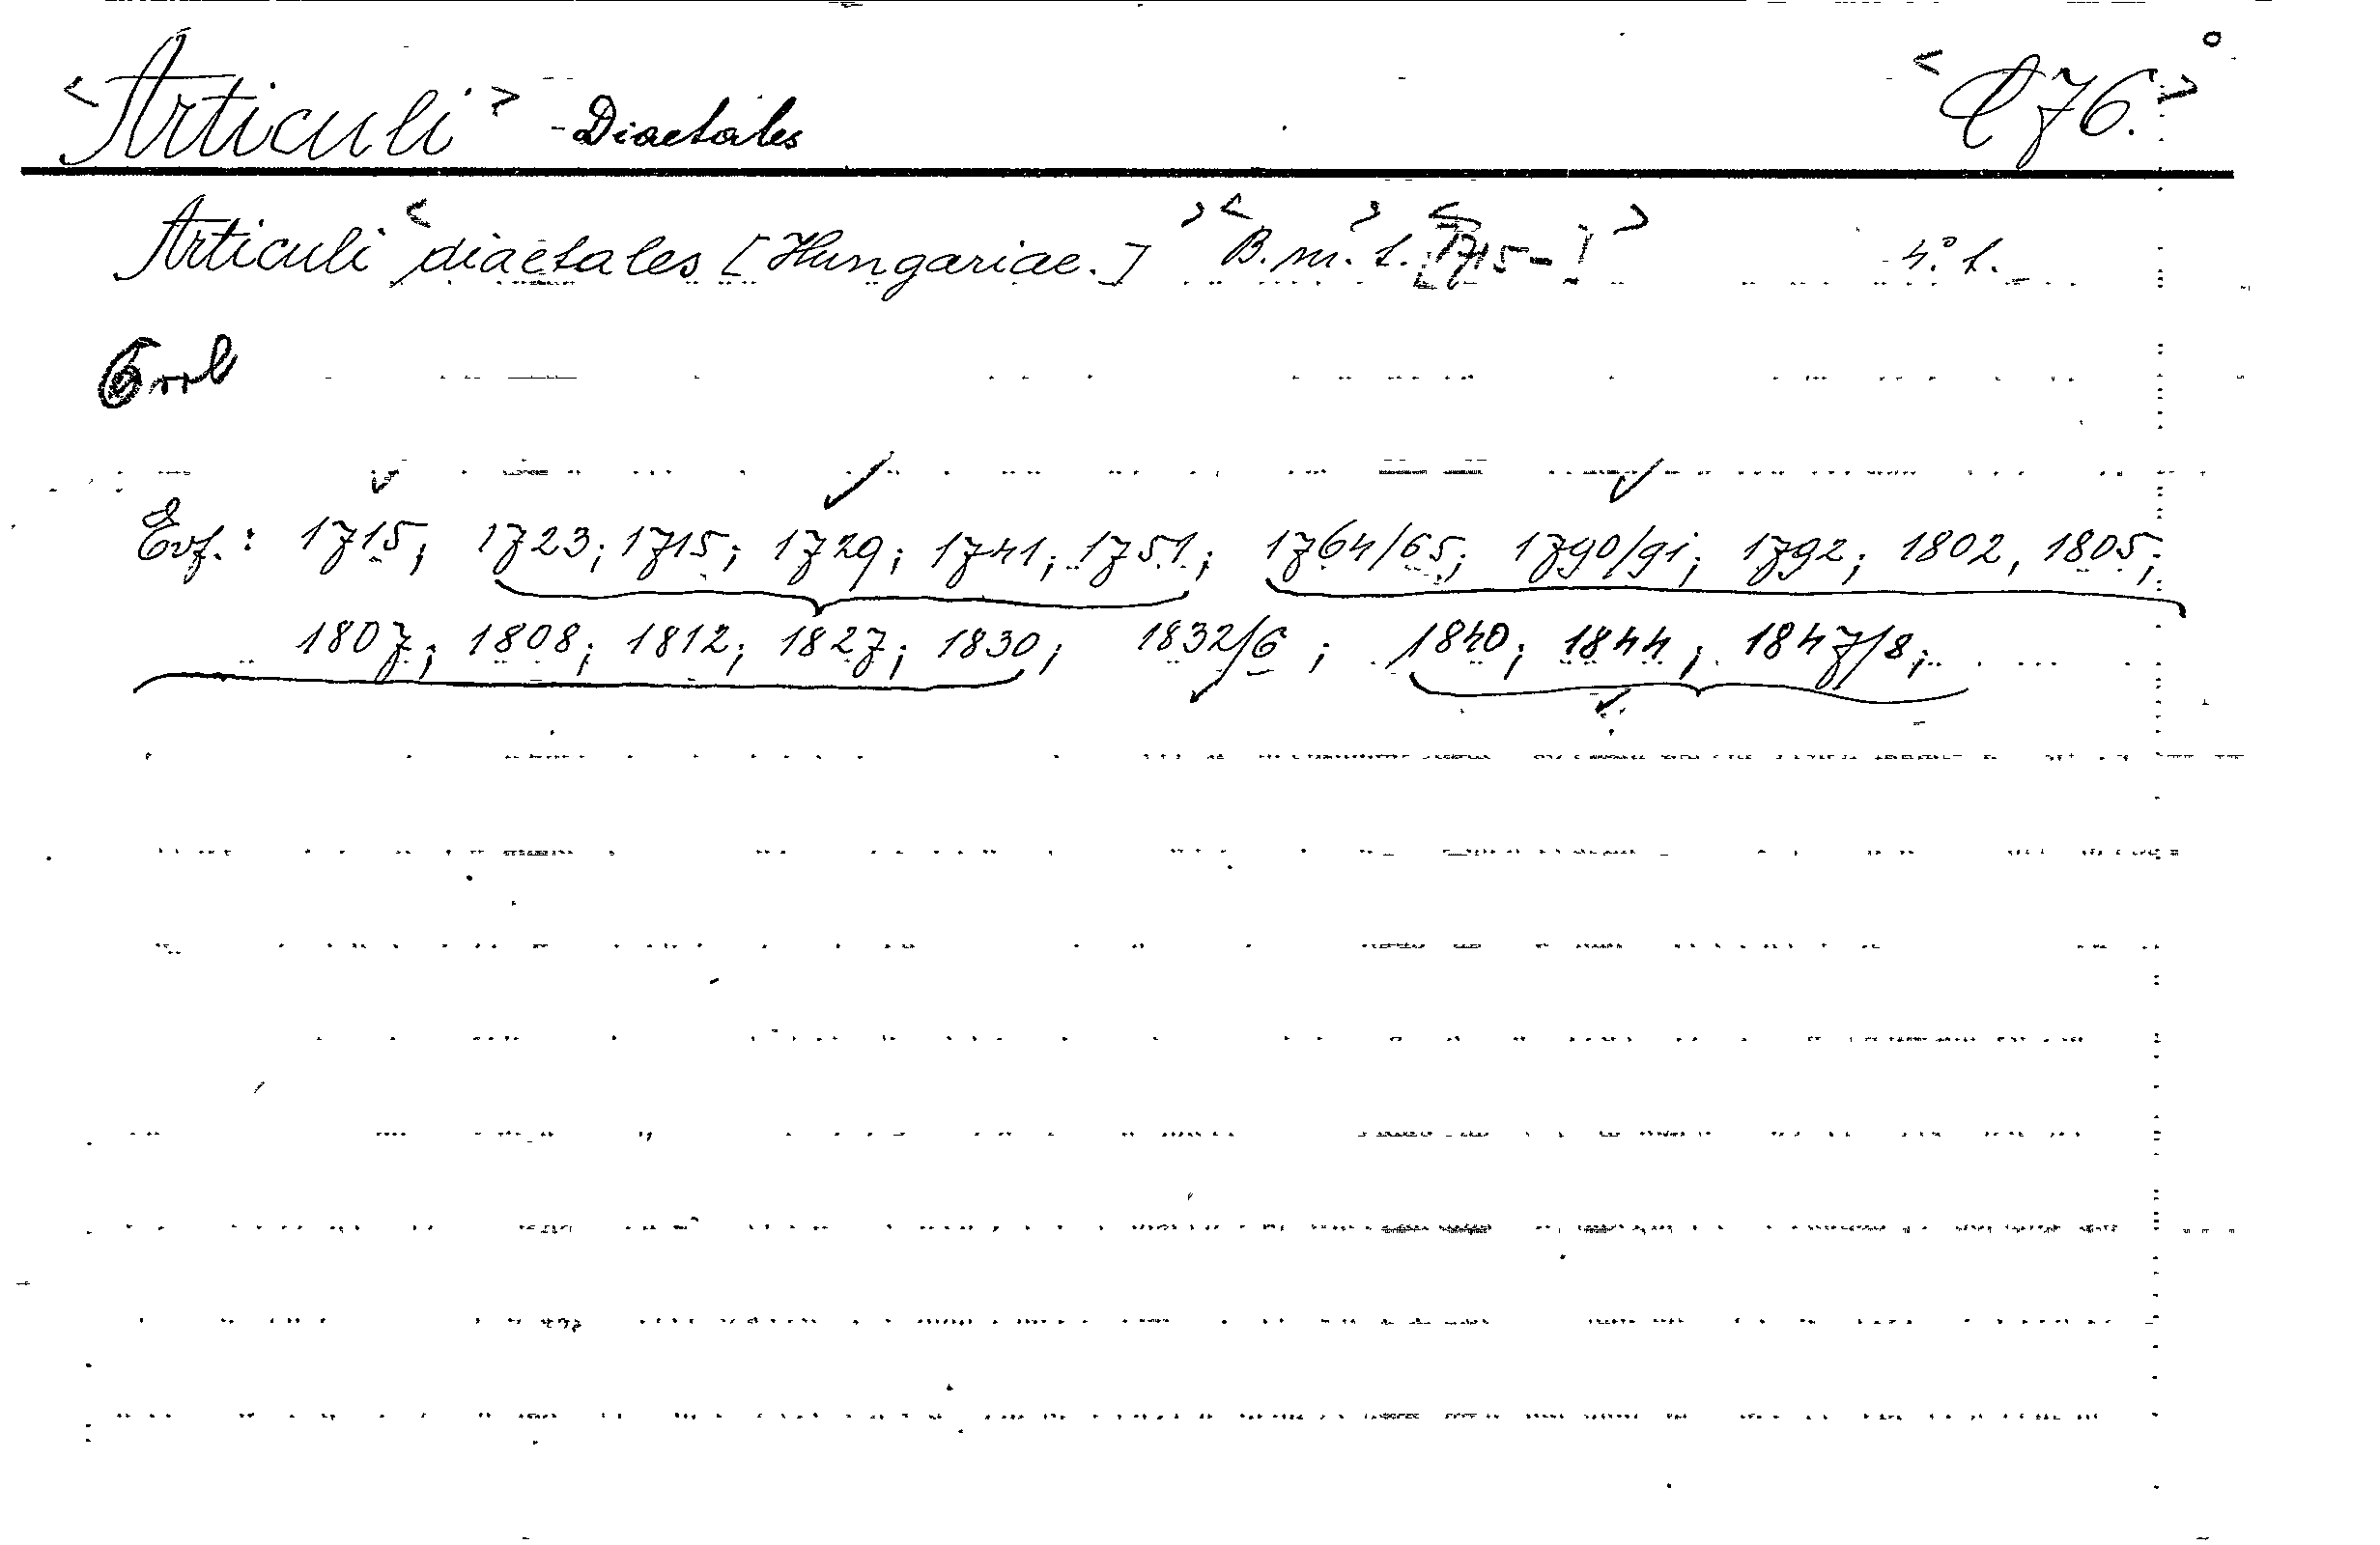 <Articuli> - Diaetales <C 76.>
Articuli <diaetales [Hungariae.]> <B. m. l.> <[1715-]> 4° l.
Évf.: 1715; 1723; 1715; 1729; 1741; 1751; 1764/65; 1790/91; 1792; 1802, 1805;
1807; 1808; 1812; 1827; 1830; 1832/6; 1840; 1844; 1847/8;